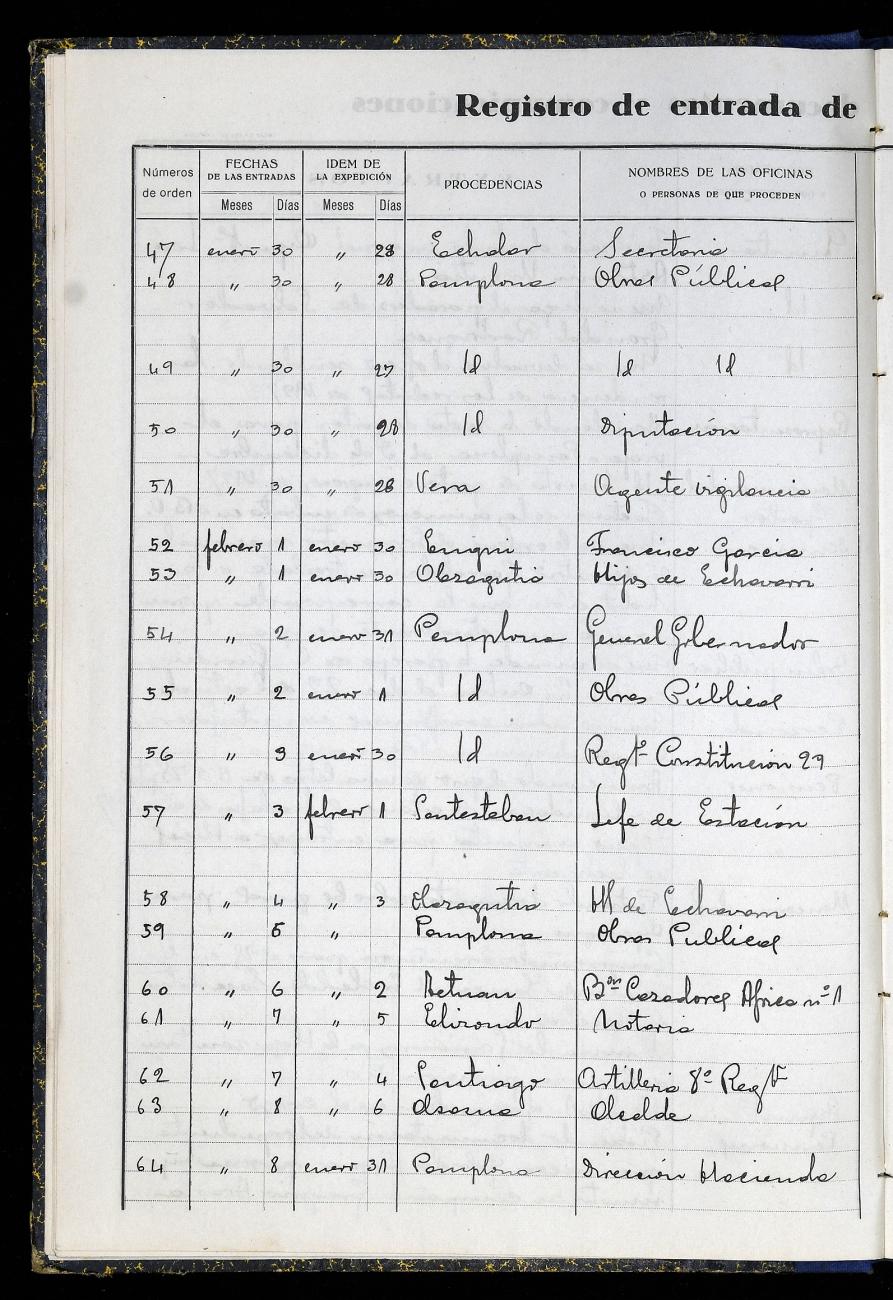 Registro de entrada de
Números de orden FECHAS DE LAS ENTRADAS Meses Días IDEM DE LA EXPEDICIÓN Meses Días PROCEDENCIAS NOMBRES DE LAS OFICINAS O PERSONAS DE QUE PROCEDEN
47 enero 30 " 28 Echalar Secretario
48 " 30 " 28 Pamplona Obras Públicas
49 " 30 " 27 Id Id Id
50 " 30 " 28 Id Diputación
51 " 30 " 28 Vera Agente vigilancia
52 febrero 1 enero 30 Eugui Francisco Garcia
53 " 1 enero 30 Olazagutia Hijos de Echavarri
54 " 2 enero 31 Pamplona General Gobernador
55 " 2 enero 1 Id Obras Públicas
56 " 3 enero 30 Id Regtº Constitución 29
57 " 3 febrero 1 Santesteban Jefe de Estación
58 " 4 " 3 Olazagutia H de Echavarri
59 " 6 " Pamplona Obras Publicas
60 " 6 " 2 Tetuan Bon Cazadores Africa nº 1
61 " 7 " 5 Elizondo Notaria
62 " 7 " 4 Santiago Artilleria 8º Regtº
63 " 8 " 6 Alcalde
64 " 8 enero 31 Pamplona Dirección Hacienda